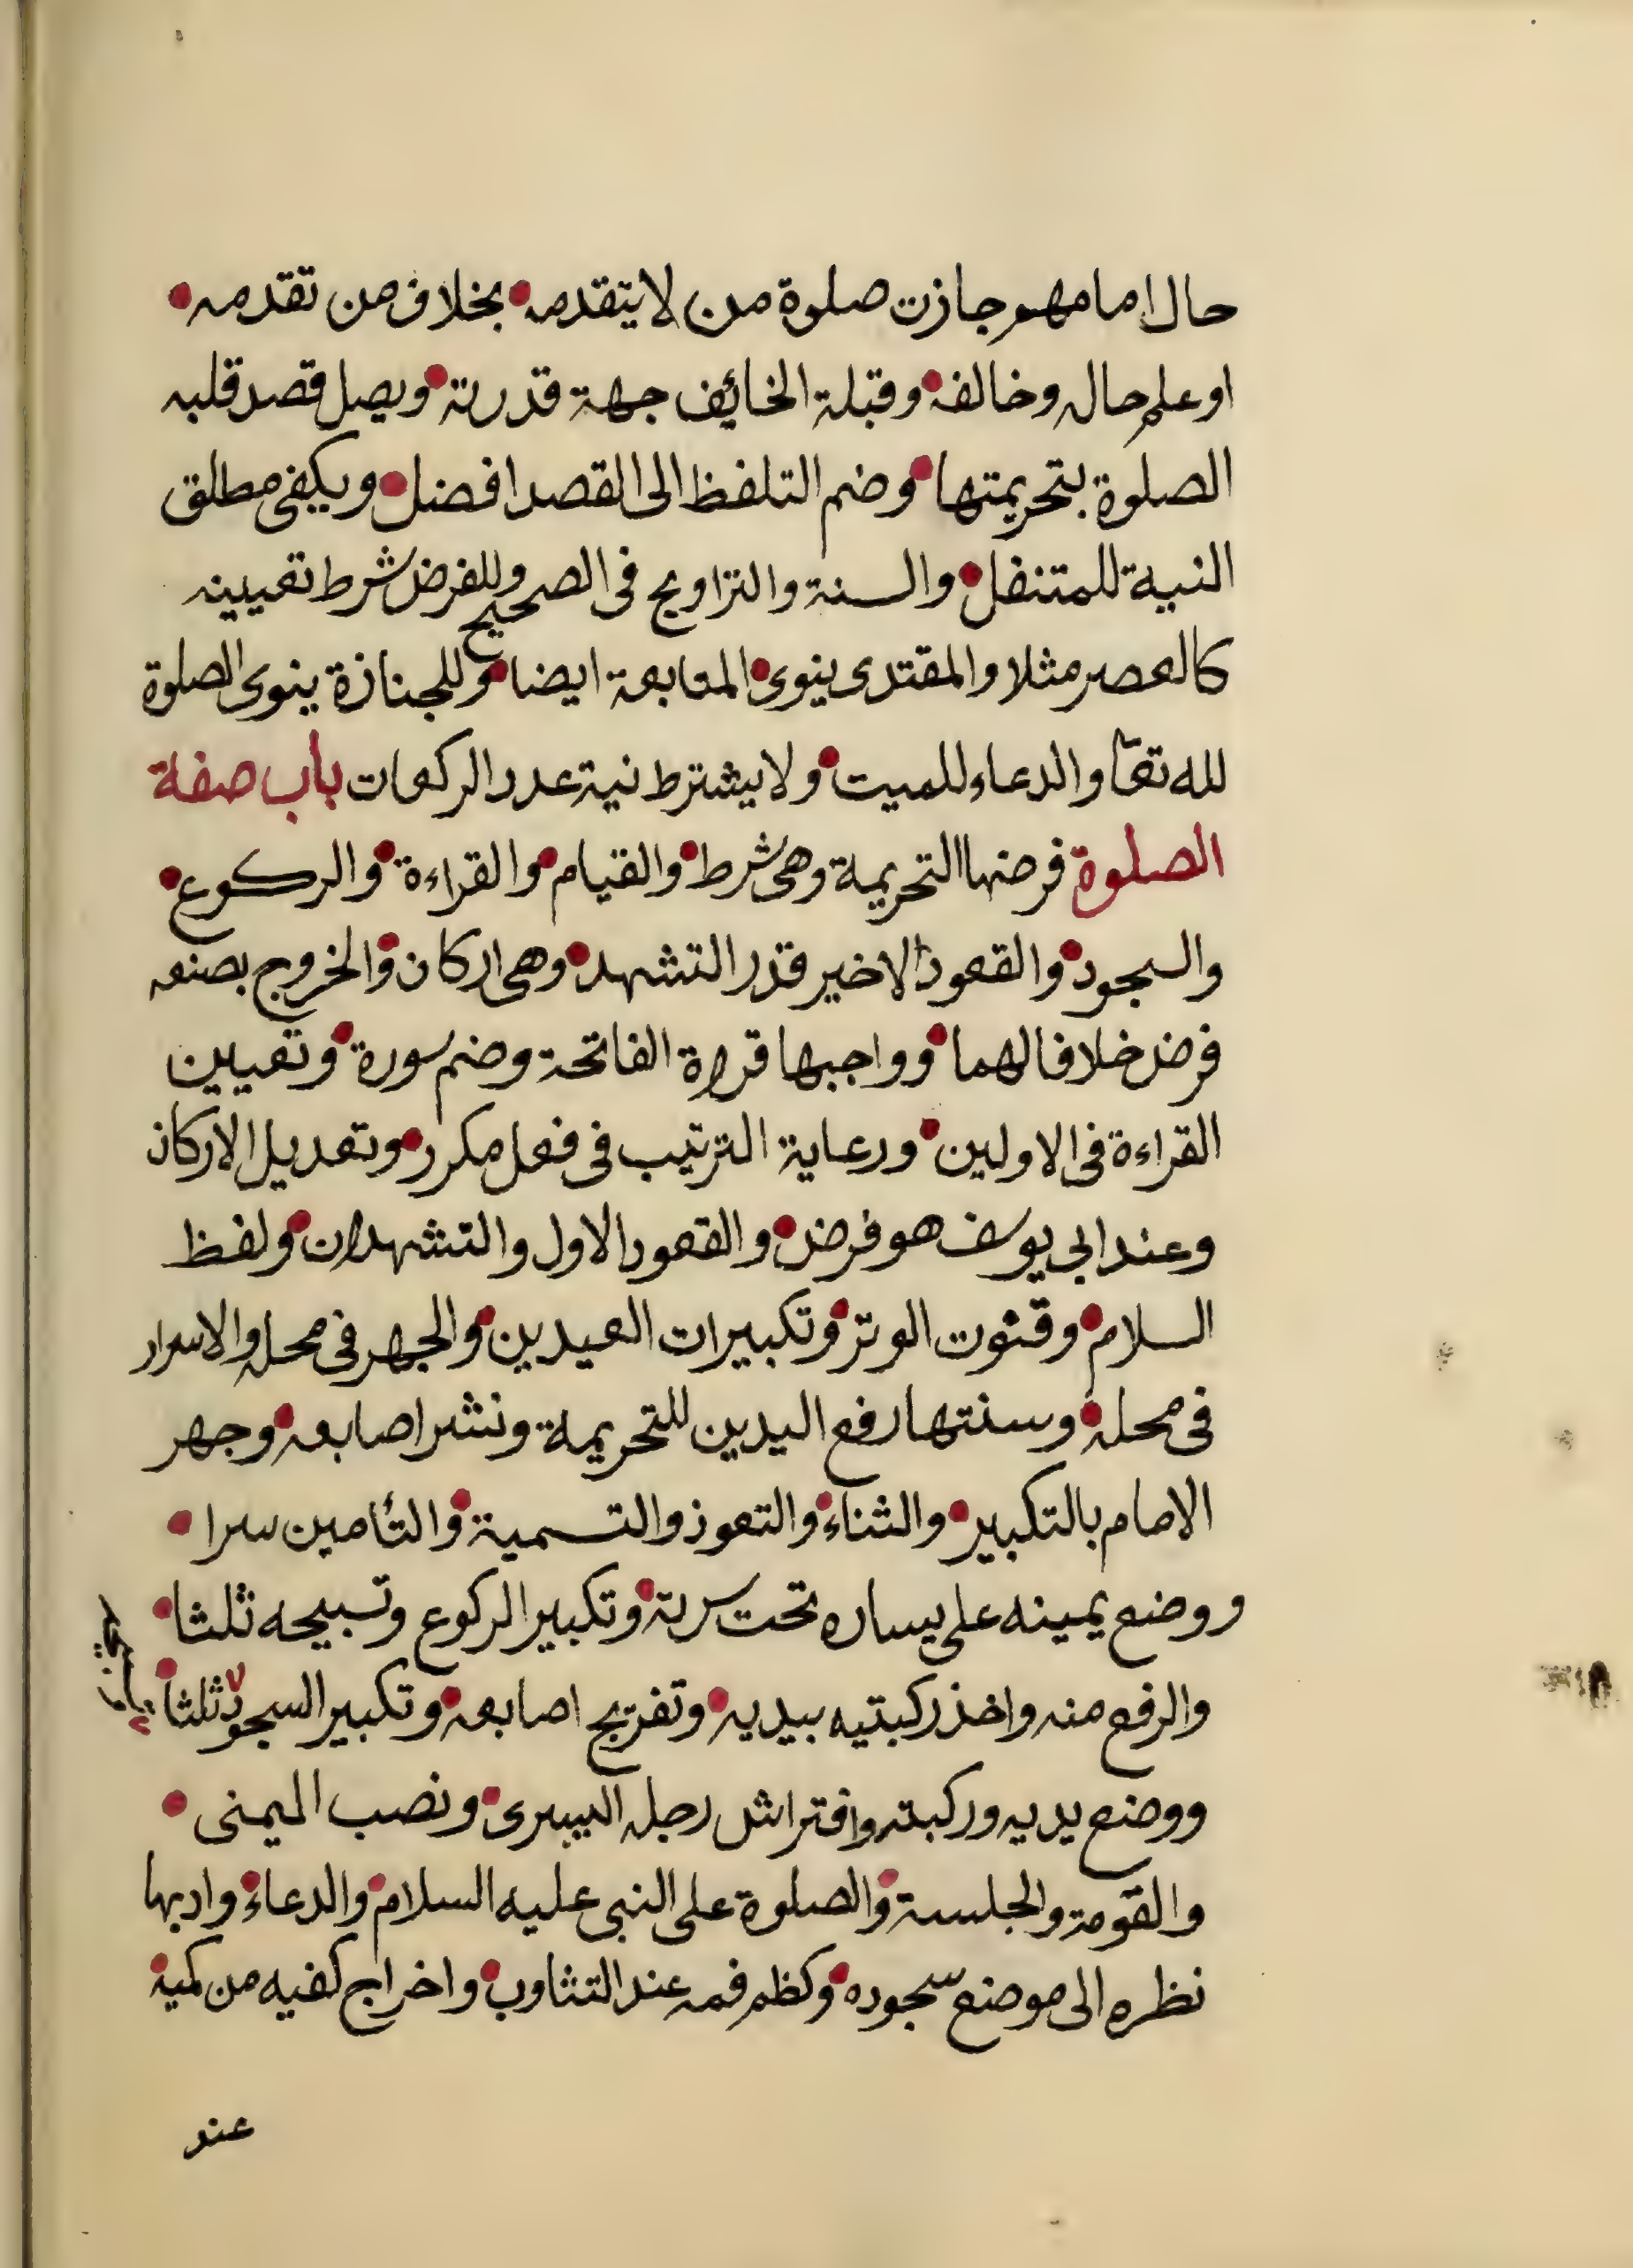 حال امامهم جازت صلوة من لا يتقدمه • بخلاف من تقدمه •
او علم حاله وخالفه • وقبلة الخائف جهة قدرته • ويصل قصد قلبه
الصلوة بتحريمتها • وضم التلفظ الى القصد افضل • ويكفى مطلق
النية للمتنفل • والسنة والتراويح فى الصحيح وللفرض شرط تعيينه
كالعصر مثلا والمقتدى ينوى • المتابعة ايضا • وللجنازة ينوى الصلوة
لله تعا والدعاء للميت • ولا يشترط نية عدد الركعات باب صفة
الصلوة فرضها التحريمة وهى شرط • والقيام • والقراءة • والركوع •
والسجود • والقعود الاخير قدر التشهد • وهى اركان • والخروج بصنعه
فرض خلافا لهما • وواجبها قراءة الفاتحة وضم سورة • وتعيين
القراءة فى الاولين • ورعاية الترتيب فى فعل مكرر • وتعديل الاركان
وعند ابى يوسف هو فرض • والقعود الاول والتشهدان • ولفظ
السلام • وقنوت الوتر • وتكبيرات العيدين • والجهر فى محله والاسرار
فى محله • وسنتها رفع اليدين للتحريمة ونشر اصابعه • وجهر
الامام بالتكبير • والثناء • والتعوذ والتسمية • والتأمين سرا •
ووضع يمينه على يساره تحت سرته • وتكبير الركوع وتسبيحه ثلثا •
والرفع منه واخذ ركبتيه بيديه • وتفريج اصابعه • وتكبير السجود ثلثا •
ووضع يديه وركبته وافتراش رجله اليسرى • ونصب اليمنى •
والقومة والجلسة • والصلوة على النبى عليه السلام • والدعاء • وادبها
نظره الى موضع سجوده • وكظم فمه عند التثاوب • واخراج كفيه من كميه •
عند